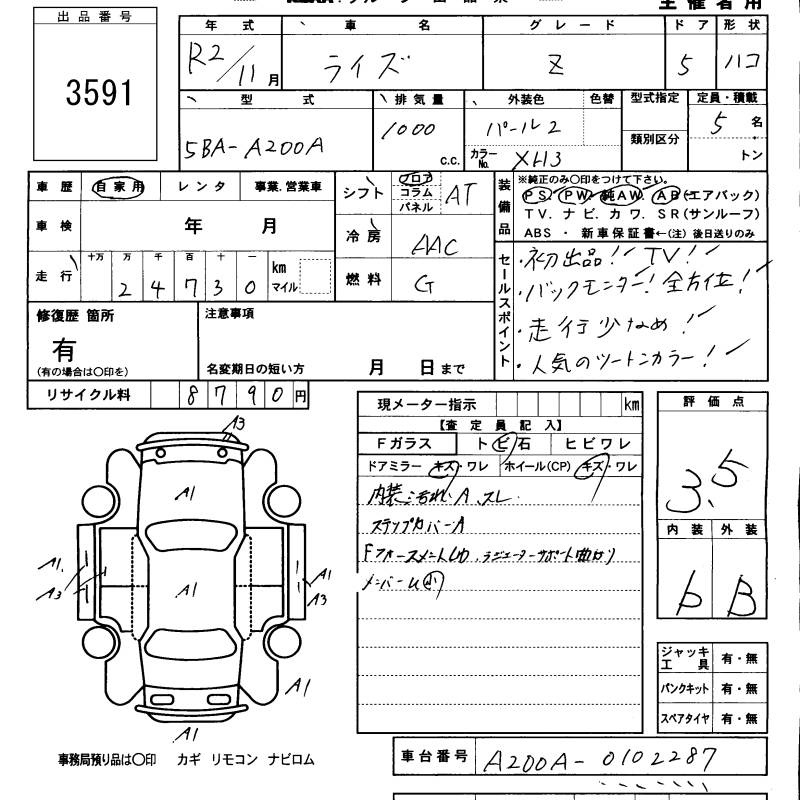 主催者用
出品番号
3591
年式 車名 グレード ドア 形状
R2/11月 ライズ Z 5 ハコ
型式 排気量 外装色 色替 型式指定 定員・積載
5BA-A200A 1000 c.c. パール2 類別区分 5名
カラーNo. XH3 トン
車歴 自家用 レンタ 事業.営業車
シフト フロア コラム パネル AT
車検 年 月
冷房 AAC
走行 十万 万 千 百 十 一
24730 km マイル
燃料 G
装備品
※純正のみ○印をつけて下さい。
PS. PW. 純AW. AB(エアバック)
TV. ナビ. カワ. SR(サンルーフ)
ABS ・ 新車保証書←(注) 後日送りのみ
セールスポイント
・初出品! TV!
・バックモニター! 全方位!
・走行少なめ!
・人気のツートンカラー!
修復歴 箇所
有
(有の場合は○印を)
注意事項
名変期日の短い方 月 日まで
リサイクル料 8790円
現メーター指示 km
【査定員記入】
Fガラス トビ石 ヒビワレ
ドアミラー キズ・ワレ ホイール(CP) キズ・ワレ
内装汚れ、A、スレ
ステップカバーA
Fフォースメント ラジエーターサポート曲り
メンバーU小
評価点
3.5
内装 外装
b B
A3
A1
A1
A1
A3
A1
A3
A1
A1
ジャッキ工具 有・無
パンクキット 有・無
スペアタイヤ 有・無
事務局預り品は○印 カギ リモコン ナビロム
車台番号 A200A-0102287